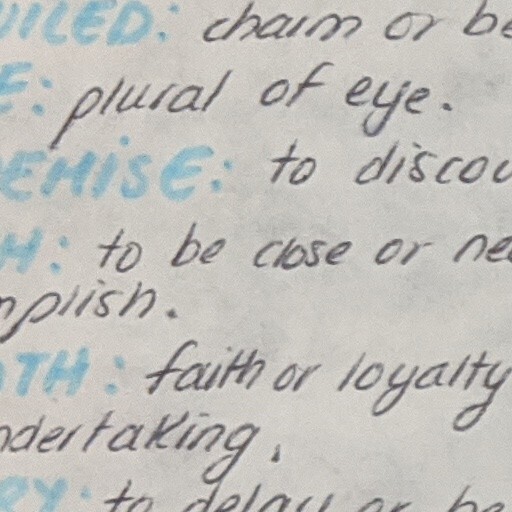 UILED: charm or be
E: plural of eye.
EMISE: to discou
H: to be close or ne
mplish.
TH: faith or loyalty
ndertaking.
RY: to delay or be